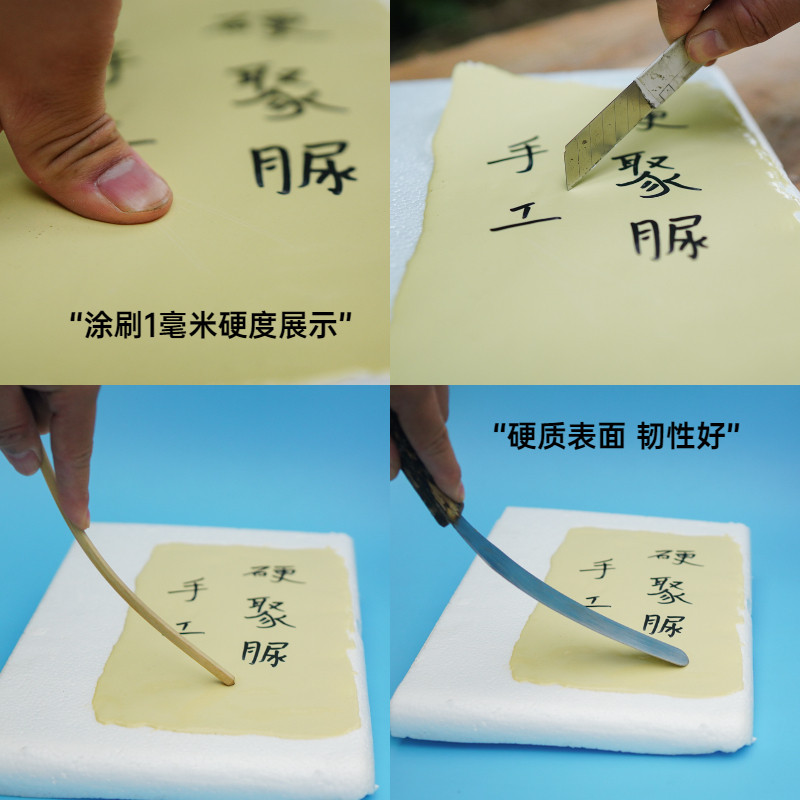 硬聚脲
手工
“涂刷1毫米硬度展示”
硬聚脲
手工
硬聚脲
手工
“硬质表面 韧性好”
硬聚脲
手工